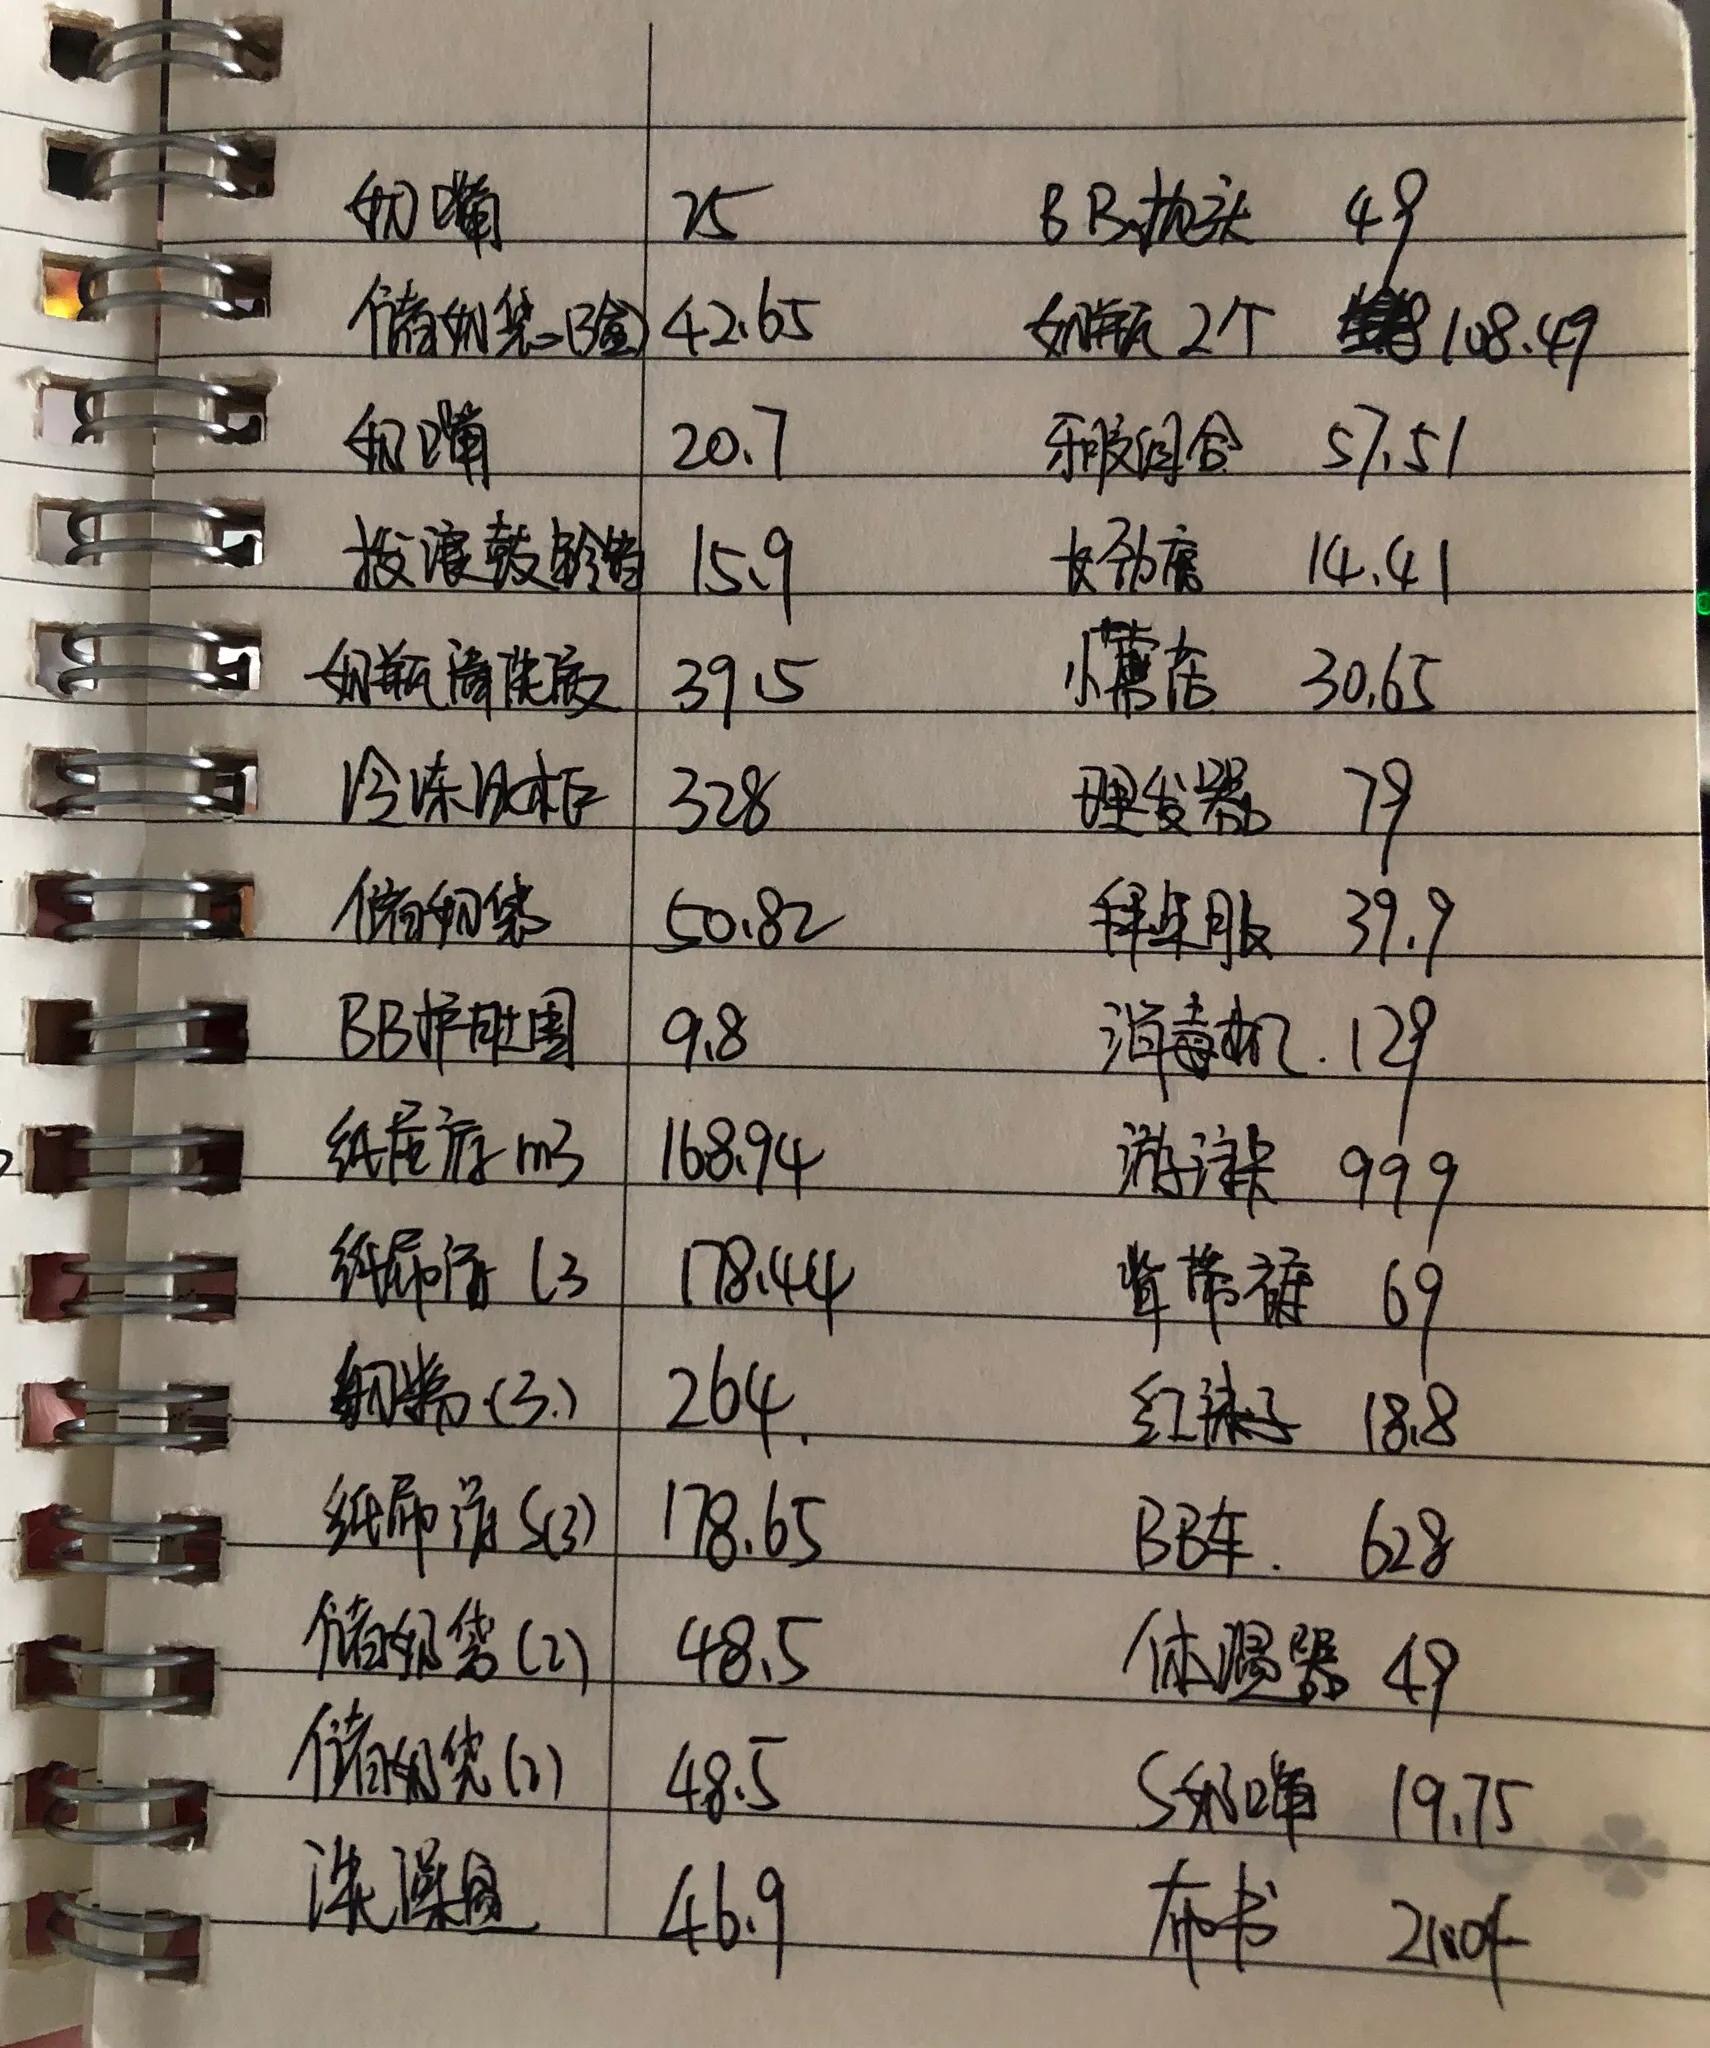 奶嘴 25 BB枕头 49
储奶袋(3盒) 42.65 奶瓶2个 108.49
奶嘴 20.7 牙胶组合 57.51
拨浪鼓铃铛 15.9 14.41
奶瓶清洗液 39.5 30.65
冷冻冰柜 328 理发器 79
储奶袋 50.82 拜年服 39.9
BB护肚围 9.8 消毒机. 129
纸尿裤m3 168.94 游泳卡 999
纸尿裤L3 178.44 背带裤 69
(3.) 264. 红袜子 18.8
纸尿裤S(3) 178.65 BB车. 628
储奶袋(2) 48.5 体温器 49
储奶袋(2) 48.5 S奶嘴 19.75
洗澡盆 46.9 布书 21.04